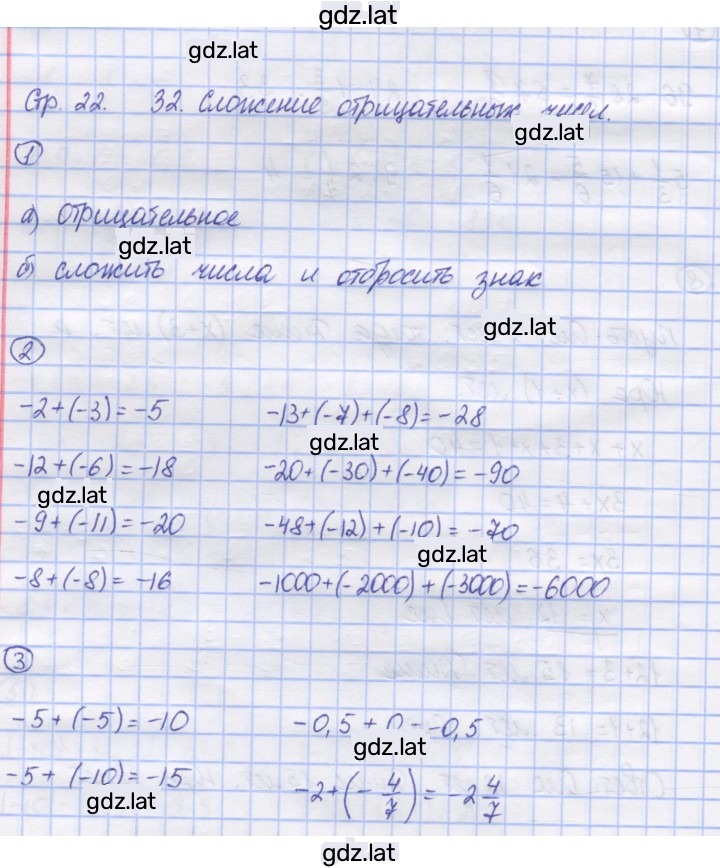 gdz.lat
gdz.lat
Стр. 22. 32. Сложение отрицательных чисел.
gdz.lat
1
а) отрицательное
gdz.lat
б) сложить числа и отбросить знак
gdz.lat
2
-2+(-3)=-5 -13+(-7)+(-8)=-28
gdz.lat
-12+(-6)=-18 -20+(-30)+(-40)=-90
gdz.lat
-9+(-11)=-20 -48+(-12)+(-10)=-70
gdz.lat
-8+(-8)=-16 -1000+(-2000)+(-3000)=-6000
3
-5+(-5)=-10 -0,5+0=-0,5
gdz.lat
-5+(-10)=-15 -2+(-4/7)=-2 4/7
gdz.lat
gdz.lat